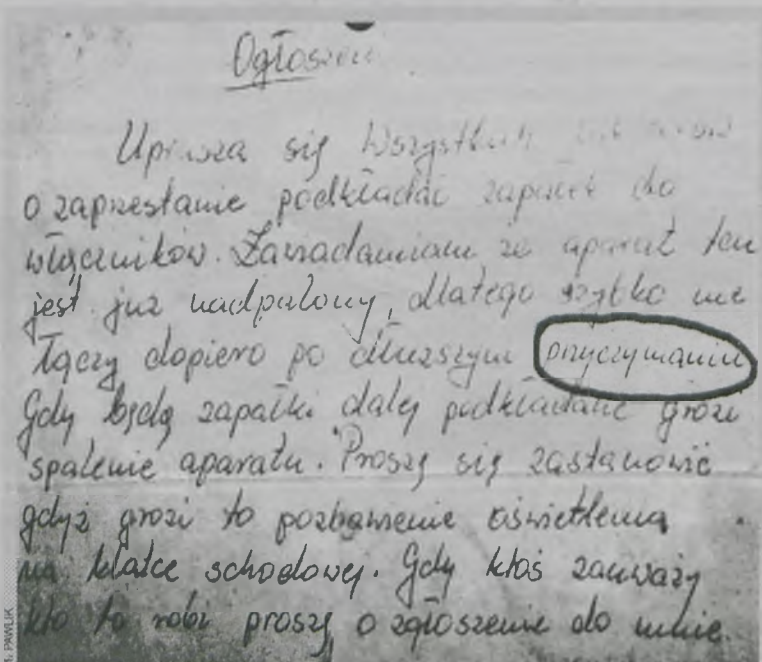 Ogłoszen
Uprasza się Wszystkich
o zaprzestanie podkładać zapałek do
włączników. Zawiadamiam że aparat ten
jest już nadpalony, dlatego szybko nie
łączy dopiero po dłuższym przyczymaniu
Gdy będą zapałki dalej podkładane grozi
spalenie aparatu. Proszę się zastanowić
gdyż grozi to pozbawienie oświetlenia
na klatce schodowej. Gdy ktoś zauważy
kto to robi proszę o zgłoszenie do mnie.
PAWLIK